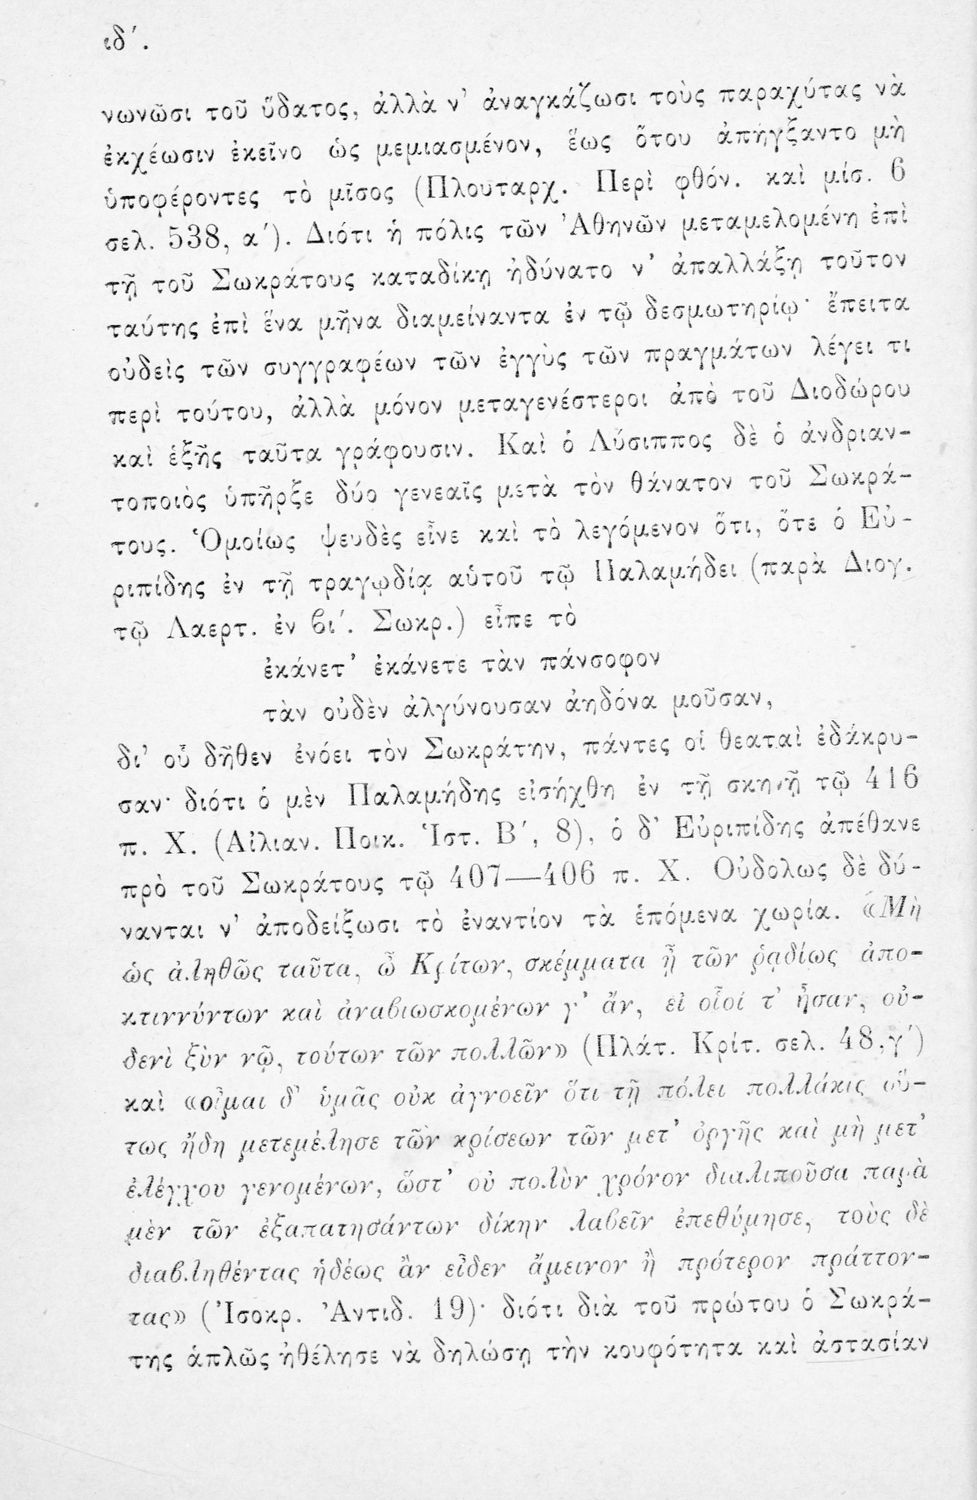 ιδ΄.
νωνῶσι τοῦ ὕδατος, ἀλλὰ ν' ἀναγκάζωσι τοὺς παραχύτας νὰ
ἐκχέωσιν ἐκεῖνο ὡς μεμιασμένον, ἕως ὅτου ἀπήγξαντο μὴ
ὑποφέροντες τὸ μῖσος (Πλουταρχ. Περὶ φθόν. καὶ μίσ. 6
σελ. 538, α΄). Διότι ἡ πόλις τῶν Ἀθηνῶν μεταμελομένη ἐπὶ
τῇ τοῦ Σωκράτους καταδίκῃ ἠδύνατο ν' ἀπαλλάξῃ τοῦτον
ταύτης ἐπὶ ἕνα μῆνα διαμείναντα ἐν τῷ δεσμωτηρίῳ· ἔπειτα
οὐδεὶς τῶν συγγραφέων τῶν ἐγγὺς τῶν πραγμάτων λέγει τι
περὶ τούτου, ἀλλὰ μόνον μεταγενέστεροι ἀπὸ τοῦ Διοδώρου
καὶ ἑξῆς ταῦτα γράφουσιν. Καὶ ὁ Λύσιππος δὲ ὁ ἀνδριαν-
τοποιὸς ὑπῆρξε δύο γενεαῖς μετὰ τὸν θάνατον τοῦ Σωκρά-
τους. Ὁμοίως ψευδὲς εἶνε καὶ τὸ λεγόμενον ὅτι, ὅτε ὁ Εὐ-
ριπίδης ἐν τῇ τραγῳδίᾳ αὑτοῦ τῷ Παλαμήδει (παρὰ Διογ.
τῷ Λαερτ. ἐν βι΄. Σωκρ.) εἶπε τὸ
ἐκάνετ' ἐκάνετε τὰν πάνσοφον
τὰν οὐδὲν ἀλγύνουσαν ἀηδόνα μοῦσαν,
δι' οὗ δῆθεν ἐνόει τὸν Σωκράτην, πάντες οἱ θεαταὶ ἐδάκρυ-
σαν· διότι ὁ μὲν Παλαμήδης εἰσήχθη ἐν τῇ σκηνῇ τῷ 416
π. Χ. (Αἰλιαν. Ποικ. Ἱστ. Β΄, 8), ὁ δ' Εὐριπίδης ἀπέθανε
πρὸ τοῦ Σωκράτους τῷ 407—406 π. Χ. Οὐδολως δὲ δύ-
νανται ν' ἀποδείξωσι τὸ ἐναντίον τὰ ἑπόμενα χωρία. «Μὴ
ὡς ἀληθῶς ταῦτα, ὦ Κρίτων, σκέμματα ᾖ τῶν ῥᾳδίως ἀπο-
κτιννύντων καὶ ἀναβιωσκομένων γ' ἄν, εἰ οἷοί τ' ἦσαν, οὐ-
δενὶ ξὺν νῷ, τούτων τῶν πολλῶν» (Πλάτ. Κρίτ. σελ. 48,γ΄)
καὶ «οἶμαι δ' ὑμᾶς οὐκ ἀγνοεῖν ὅτι τῇ πόλει πολλάκις οὕ-
τως ἤδη μετεμέλησε τῶν κρίσεων τῶν μετ' ὀργῆς καὶ μὴ μετ'
ἐλέγχου γενομένων, ὥστ' οὐ πολὺν χρόνον διαλιποῦσα παρὰ
μὲν τῶν ἐξαπατησάντων δίκην λαβεῖν ἐπεθύμησε, τοὺς δὲ
διαβληθέντας ἡδέως ἂν εἶδεν ἄμεινον ἢ πρότερον πράττον-
τας» (Ἰσοκρ. Ἀντιδ. 19)· διότι διὰ τοῦ πρώτου ὁ Σωκρά-
της ἁπλῶς ἠθέλησε νὰ δηλώσῃ τὴν κουφότητα καὶ ἀστασίαν